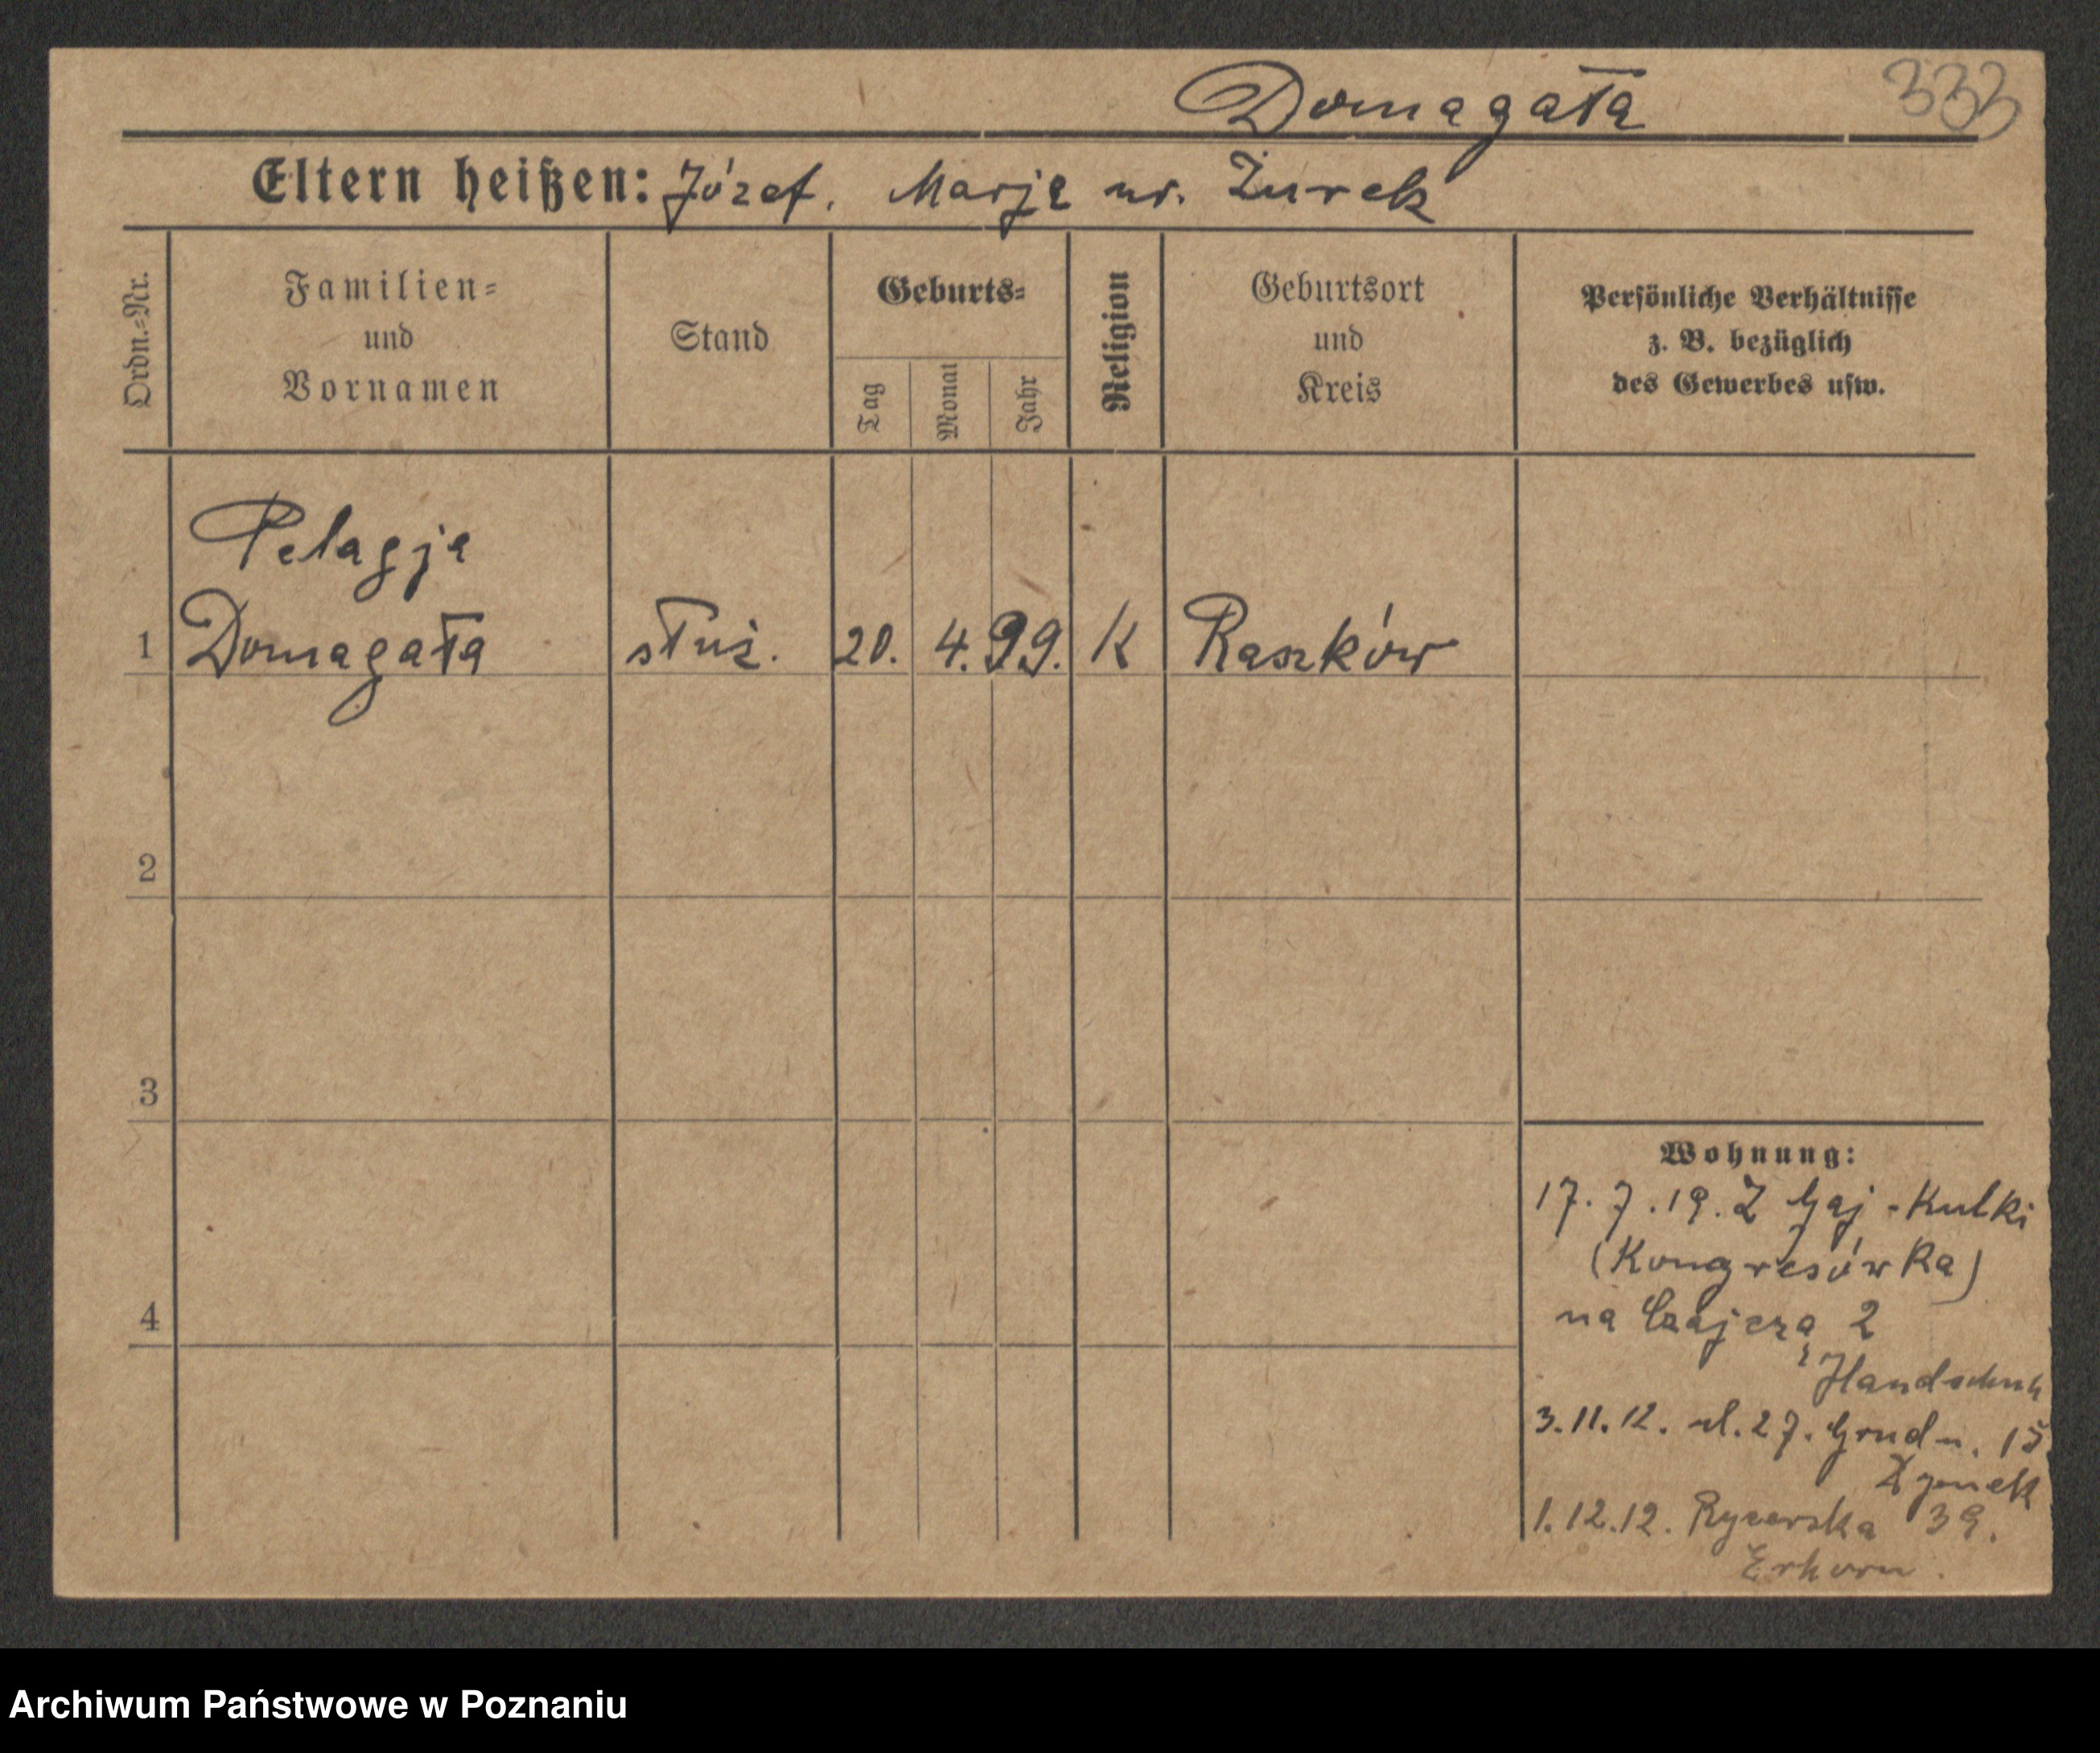 Domagała 333
Eltern heißen: Józef, Marja ur. Żurek
Ordn.-Nr.
Familien-
und
Vornamen
Stand
Geburts-
Tag
Monat
Jahr
Religion
Geburtsort
und
Kreis
Persönliche Verhältnisse
z. B. bezüglich
des Gewerbes usw.
Pelagja
1 Domagała służ. 20. 4. 99. K Raszków
2
3
4
Wohnung:
17. 7. 19. Z Gaj - Kulki
(Kongresówka)
na 2
Handschuh
3. 11. 12. ul. 27. Grudn. 15
1. 12. 12. Rycerska 39.
Erhorn.
Archiwum Państwowe w Poznaniu